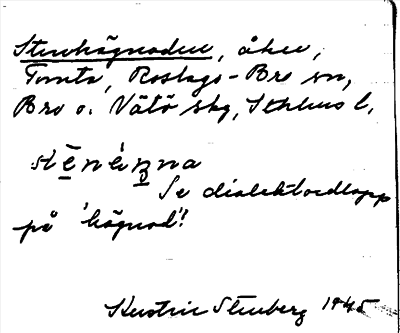 Stenhägnaden, åker,
Tomta, Roslags-Bro sn,
Bro o. Vätö skg, Sthlms l.
Se dialektordlapp
på 'hägnad'!
Stenberg 1945